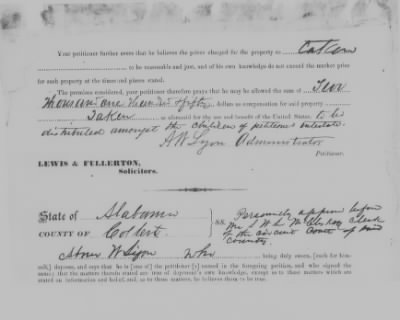 Your petitioner further avers that he believes the prices charged for the property so taken
to be reasonable and just, and of his own knowledge do not exceed the market price
for such property at the times and places stated.
The premises considered, your petitioner therefore prays that he may be allowed the sum of Two
Thousand one Hundred & fifty dollars as compensation for said property
Taken as aforesaid for the use and benefit of the United States, to be
distributed amongst the children of petitioners intestate.
A W Ligon Administrator
Petitioner.
LEWIS & FULLERTON,
Solicitors.
State of Alabama
COUNTY OF Colbert
SS. Personally appears before
me
of the circuit Court of said
county.
Above W Ligon who being duly sworn, (each for himself,) deposes, and says that he is [one of] the petitioner [s] named in the foregoing petition, and who signed the
same; that the matters therein stated are true of deponent's own knowledge, except as to those matters which are
stated on information and belief, and, as to those matters, he believes them to be true.